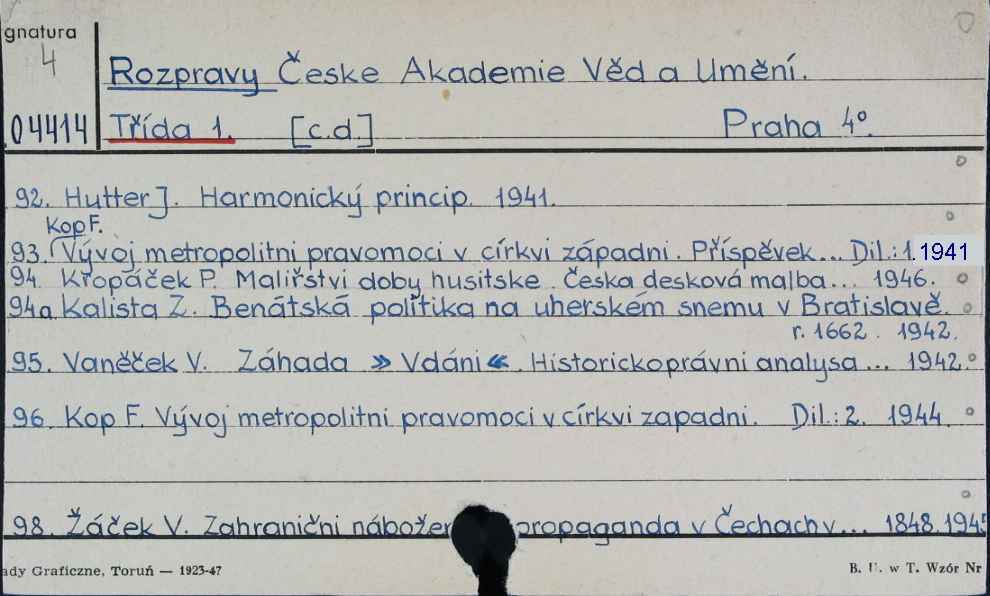 gnatura
4
Rozpravy České Akademie Věd a Umění.
04414 Třída 1. [c.d.] Praha 4º.
92. Hutter J. Harmonický princip. 1941.
Kop F.
93. Vývoj metropolitni pravomoci v církvi západni. Příspěvek... Dil.:1. 1941
94. Kropáček P. Maliřstvi doby husitske. Česka desková malba... 1946.
94a Kalista Z. Benátská politika na uherském snemu v Bratislavě.
r. 1662. 1942.
95. Vaněček V. Záhada » Vdáni «. Historickoprávni analysa... 1942.
96. Kop F. Vývoj metropolitni pravomoci v církvi zapadni. Dil.: 2. 1944
98. Žáček V. Zahranični nábožen propaganda v Čechach v... 1848. 1945
ady Graficzne, Toruń — 1923-47 B. U. w T. Wzór Nr